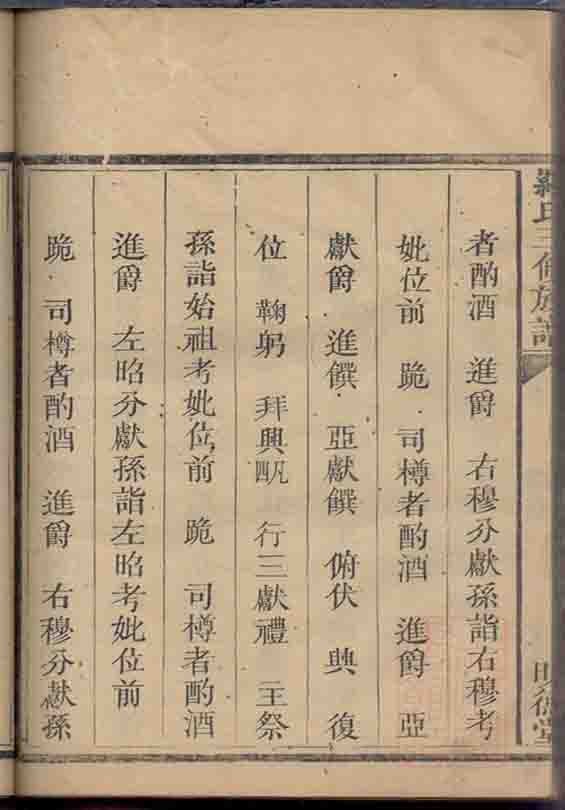 羅氏三修族譜
者酌酒 進爵 右穆分獻孫詣右穆考
妣位前 跪 司樽者酌酒 進爵 亞
獻爵 進饌 亞獻饌 俯伏 興 復
位 鞠躬 拜興凡四 行三獻禮 主祭
孫詣始祖考妣位前 跪 司樽者酌酒
進爵 左昭分獻孫詣左昭考妣位前
跪 司樽者酌酒 進爵 右穆分獻孫